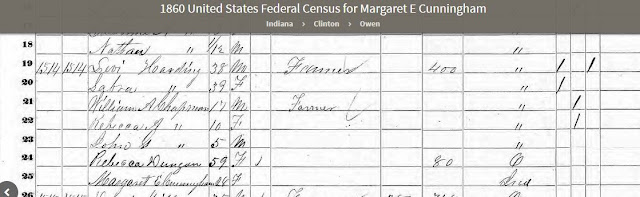 1860 United States Federal Census for Margaret E Cunningham
Indiana > Clinton > Owen
18 Nathan " 1/12 M "
19 1514 1514 Levi Harding 38 M Farmer 400 " / /
20 " 39 F " /
21 William A Chapman 17 M Farmer " /
22 Rebecca J " 10 F " /
23 John " 5 M "
24 Rebecca Duncan 59 F 80 O
25 Margaret E Cunningham 28 F Ind
26